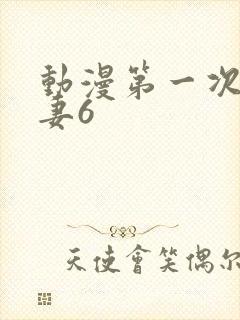 動漫第一次
妻6
天使會笑偶尔